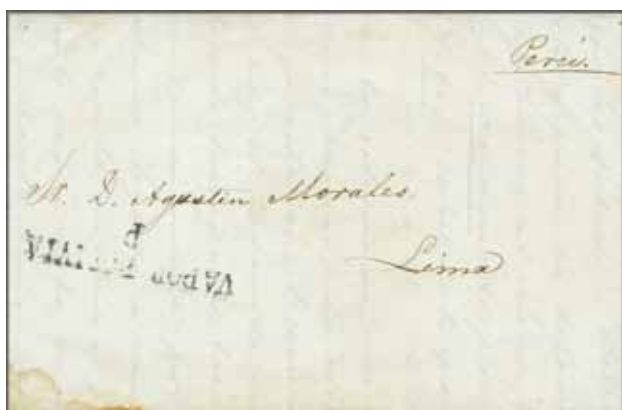 Perú.
Sr. D. Agustin Morales.
VAPOR
Lima